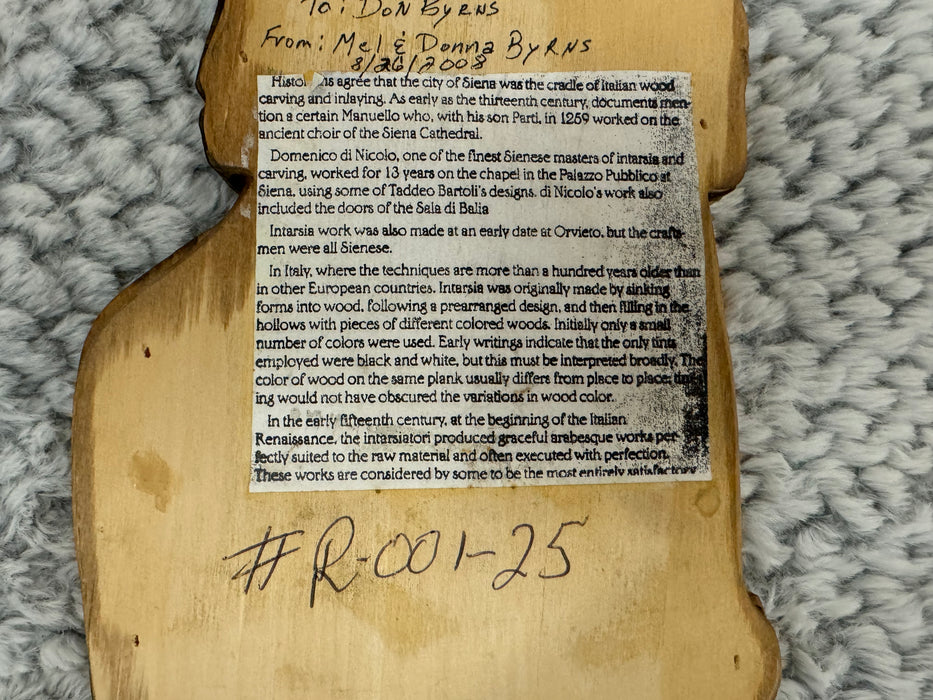 To: Don Byrns
From: Mel & Donna Byrns
8/26/2008
ns agree that the city of Siena was the cradle of Italian wood
carving and inlaying. As early as the thirteenth century, documents men-
tion a certain Manuello who, with his son Parti, in 1259 worked on the
ancient choir of the Siena Cathedral.
Domenico di Nicolo, one of the finest Sienese masters of intarsia and
carving, worked for 13 years on the chapel in the Palazzo Pubblico at
Siena, using some of Taddeo Bartoli's designs. di Nicolo's work also
included the doors of the Sala di Balia
Intarsia work was also made at an early date at Orvieto, but the crafts-
men were all Sienese.
In Italy, where the techniques are more than a hundred years older than
in other European countries. Intarsia was originally made by sinking
forms into wood, following a prearranged design, and then filling in the
hollows with pieces of different colored woods. Initially only a small
number of colors were used. Early writings indicate that the only tints
employed were black and white, but this must be interpreted broadly. The
color of wood on the same plank usually differs from place to place; tint-
ing would not have obscured the variations in wood color.
In the early fifteenth century, at the beginning of the Italian
Renaissance, the intarsiatori produced graceful arabesque works per-
fectly suited to the raw material and often executed with perfection.
These works are considered by some to be the most entirely satisfactory
#R-001-25